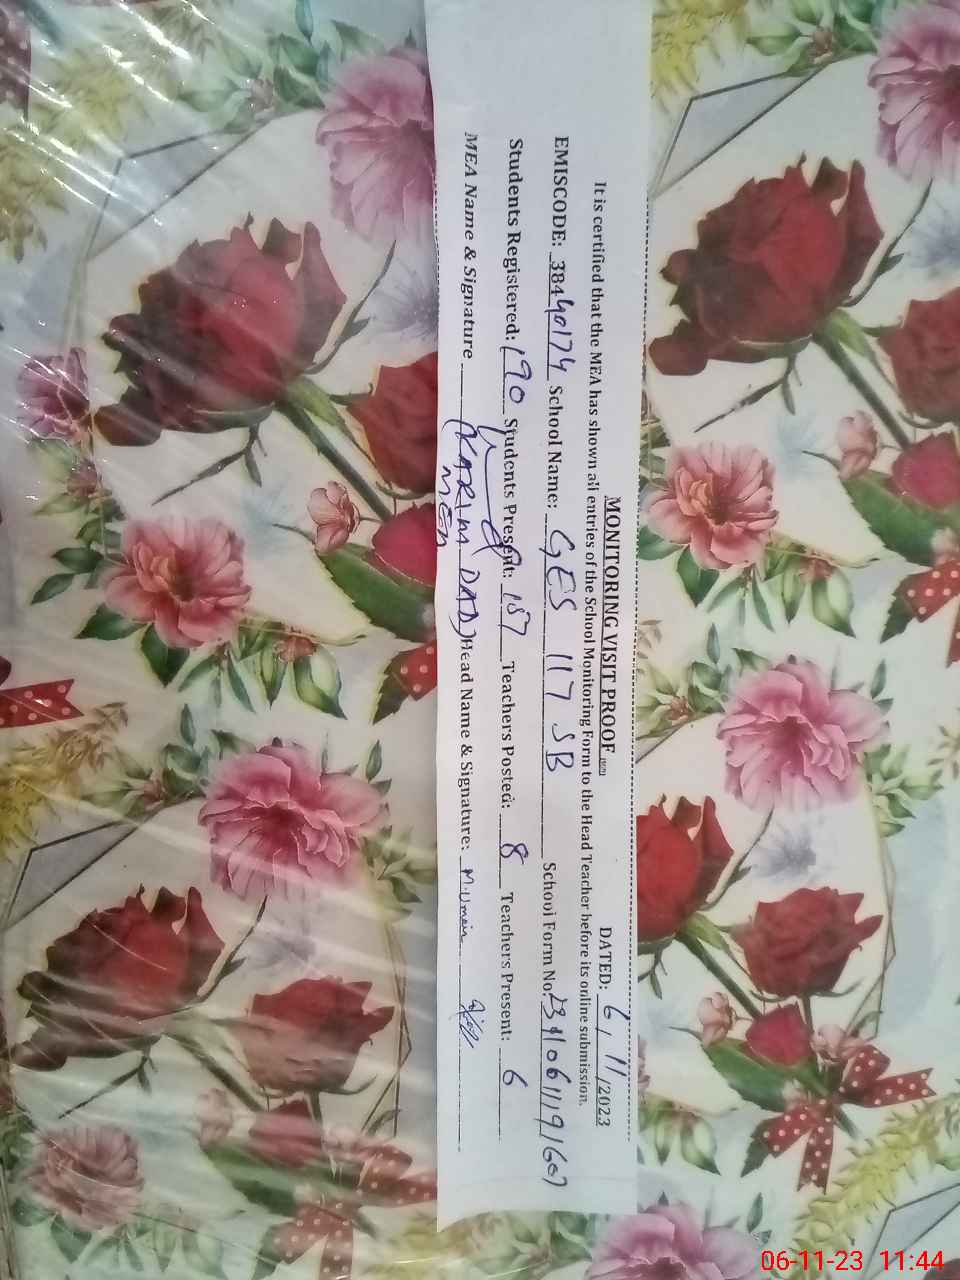 MONITORING VISIT PROOF
DATED: 6, 11/2023
It is certified that the MEA has shown all entries of the School Monitoring Form to the Head Teacher before its online submission.
EMISCODE: 38440174 School Name: GES 117 SB School Form No:
Students Registered: 190 Students Present: 187 Teachers Posted: 8 Teachers Present: 6
MEA Name & Signature (KARIM DAD) Head Name & Signature: M.Umair
MEA
06-11-23 11:44